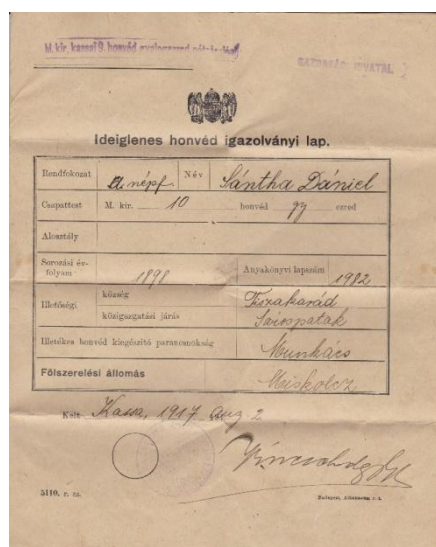 M. kir. kassai 9. honvéd gyalogezred
GAZDASÁGI HIVATAL
Ideiglenes honvéd igazolványi lap.
Rendfokozat népf. Név Sántha Dániel
Csapattest M. kir. 10 honvéd gy ezred
Alosztály
Sorozási év-
folyam 1898 Anyakönyvi lapszám 1982
Illetőségi község Tiszakarád
közigazgatási járás Sárospatak
Illetékes honvéd kiegészítő parancsnokság Munkács
Fölszerelési állomás Miskolcz
Kelt Kassa, 1917 aug. 2
5110. r. sz.
Budapest,